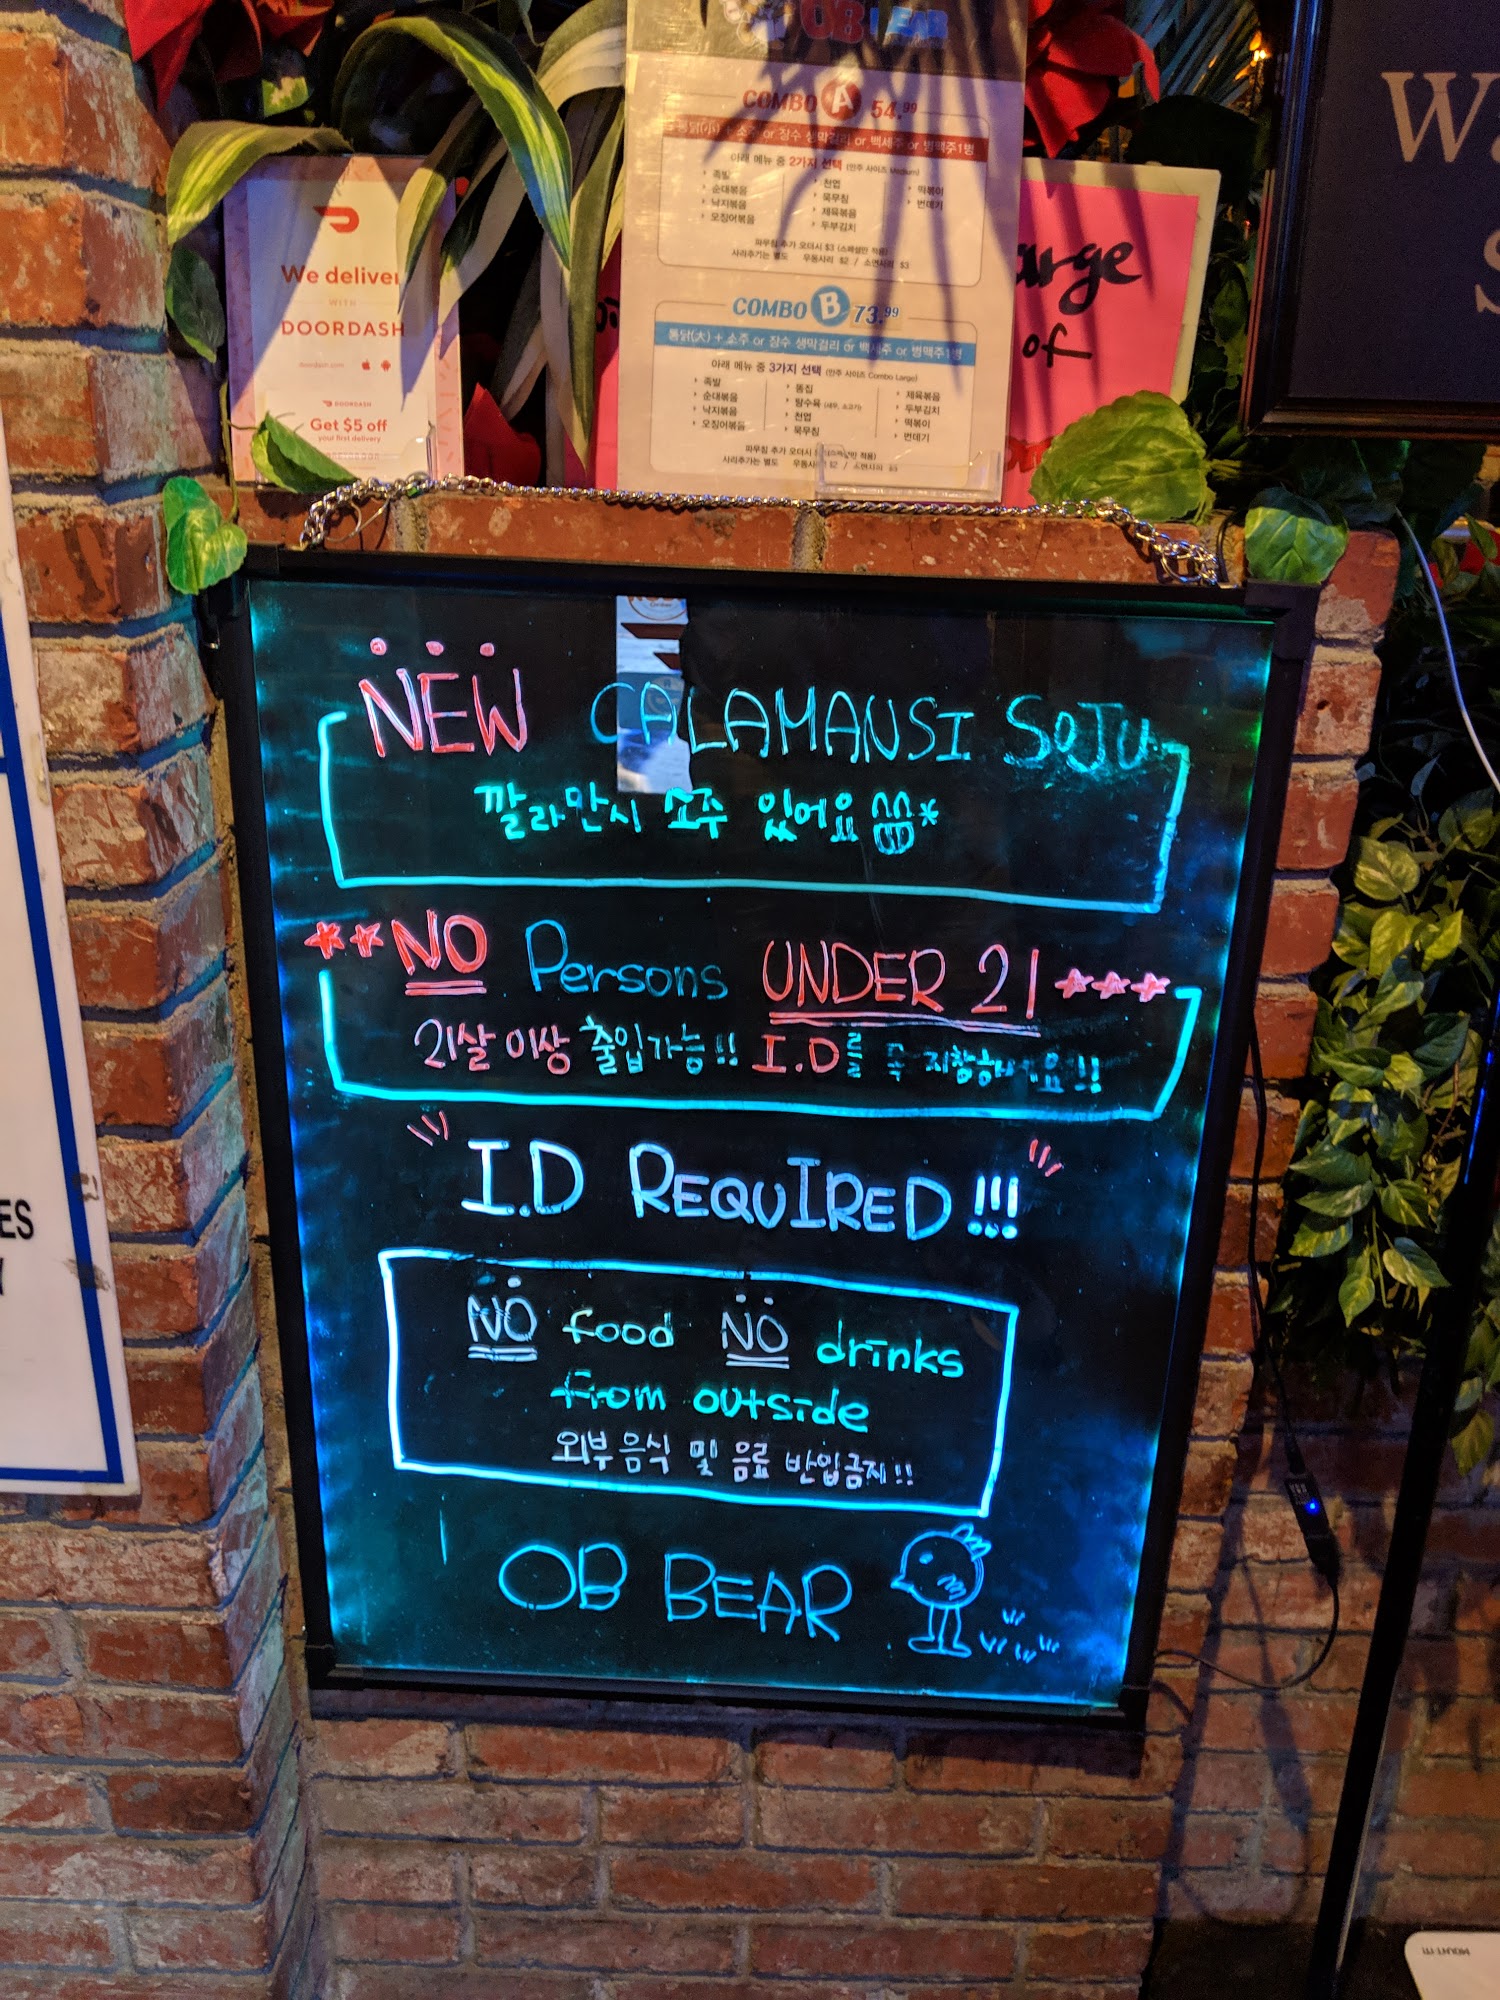 OB BEAR
COMBO A 54.99
통닭(小) + 소주 or 장수 생막걸리 or 백세주 or 병맥주1병
아래 메뉴 중 2가지 선택 (안주 사이즈 Medium)
족발
순대볶음
낙지볶음
오징어볶음
천엽
묵무침
제육볶음
두부김치
떡볶이
번데기
파무침 추가 오더시 $3 (스페셜만 적용)
사리추가는 별도 우동사리 $2 / 소면사리 $3
COMBO B 73.99
통닭(大) + 소주 or 장수 생막걸리 or 백세주 or 병맥주1병
아래 메뉴 중 3가지 선택 (안주 사이즈 Combo Large)
족발
순대볶음
낙지볶음
오징어볶음
똥집
천엽
묵무침
제육볶음
두부김치
떡볶이
번데기
파무침 추가 오더시 적용)
사리추가는 별도 우동사리 $2 / 소면사리 $3
We deliver
WITH
DOORDASH
doordash.com
DOORDASH
Get $5 off
your first delivery
arge
of
W
S
NEW CALAMANSI SOJU
깔라만시 소주 있어요
**NO Persons UNDER 21***
21살 이상 출입가능!! I.D를 꼭 지참하세요!!
I.D REQUIRED!!!
NO food NO drinks
from outside
외부음식 및 음료 반입금지!!
OB BEAR
ES
Y